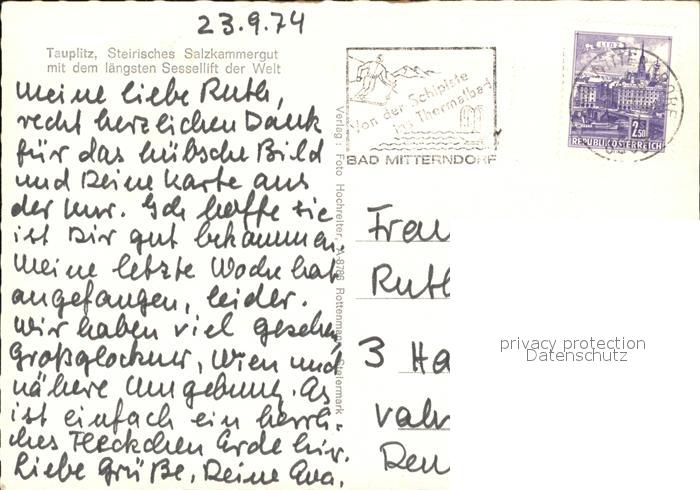 23.9.74
Tauplitz, Steirisches Salzkammergut
mit dem längsten Sessellift der Welt
Meine liebe Ruth,
recht herzlichen Dank
für das hübsche Bild
und Deine Karte aus
der Kur. Ich hoffe sie
ist Dir gut bekommen.
Meine letzte Woche hat
angefangen, leider.
Wir haben viel gesehen,
Großglockner, Wien und
nähere Umgebung. Es
ist einfach ein herrli-
ches Fleckchen Erde hier.
Liebe Grüße, Deine Eva.
Verlag: Foto Hochreiter, A-8786 Rottenmann, Steiermark
Von der Schipiste
ins Thermalbad
BAD MITTERNDORF
LINZ
2.50
REPUBLIK ÖSTERREICH
Frau
Ruth
3 Ha
Den
privacy protection
Datenschutz